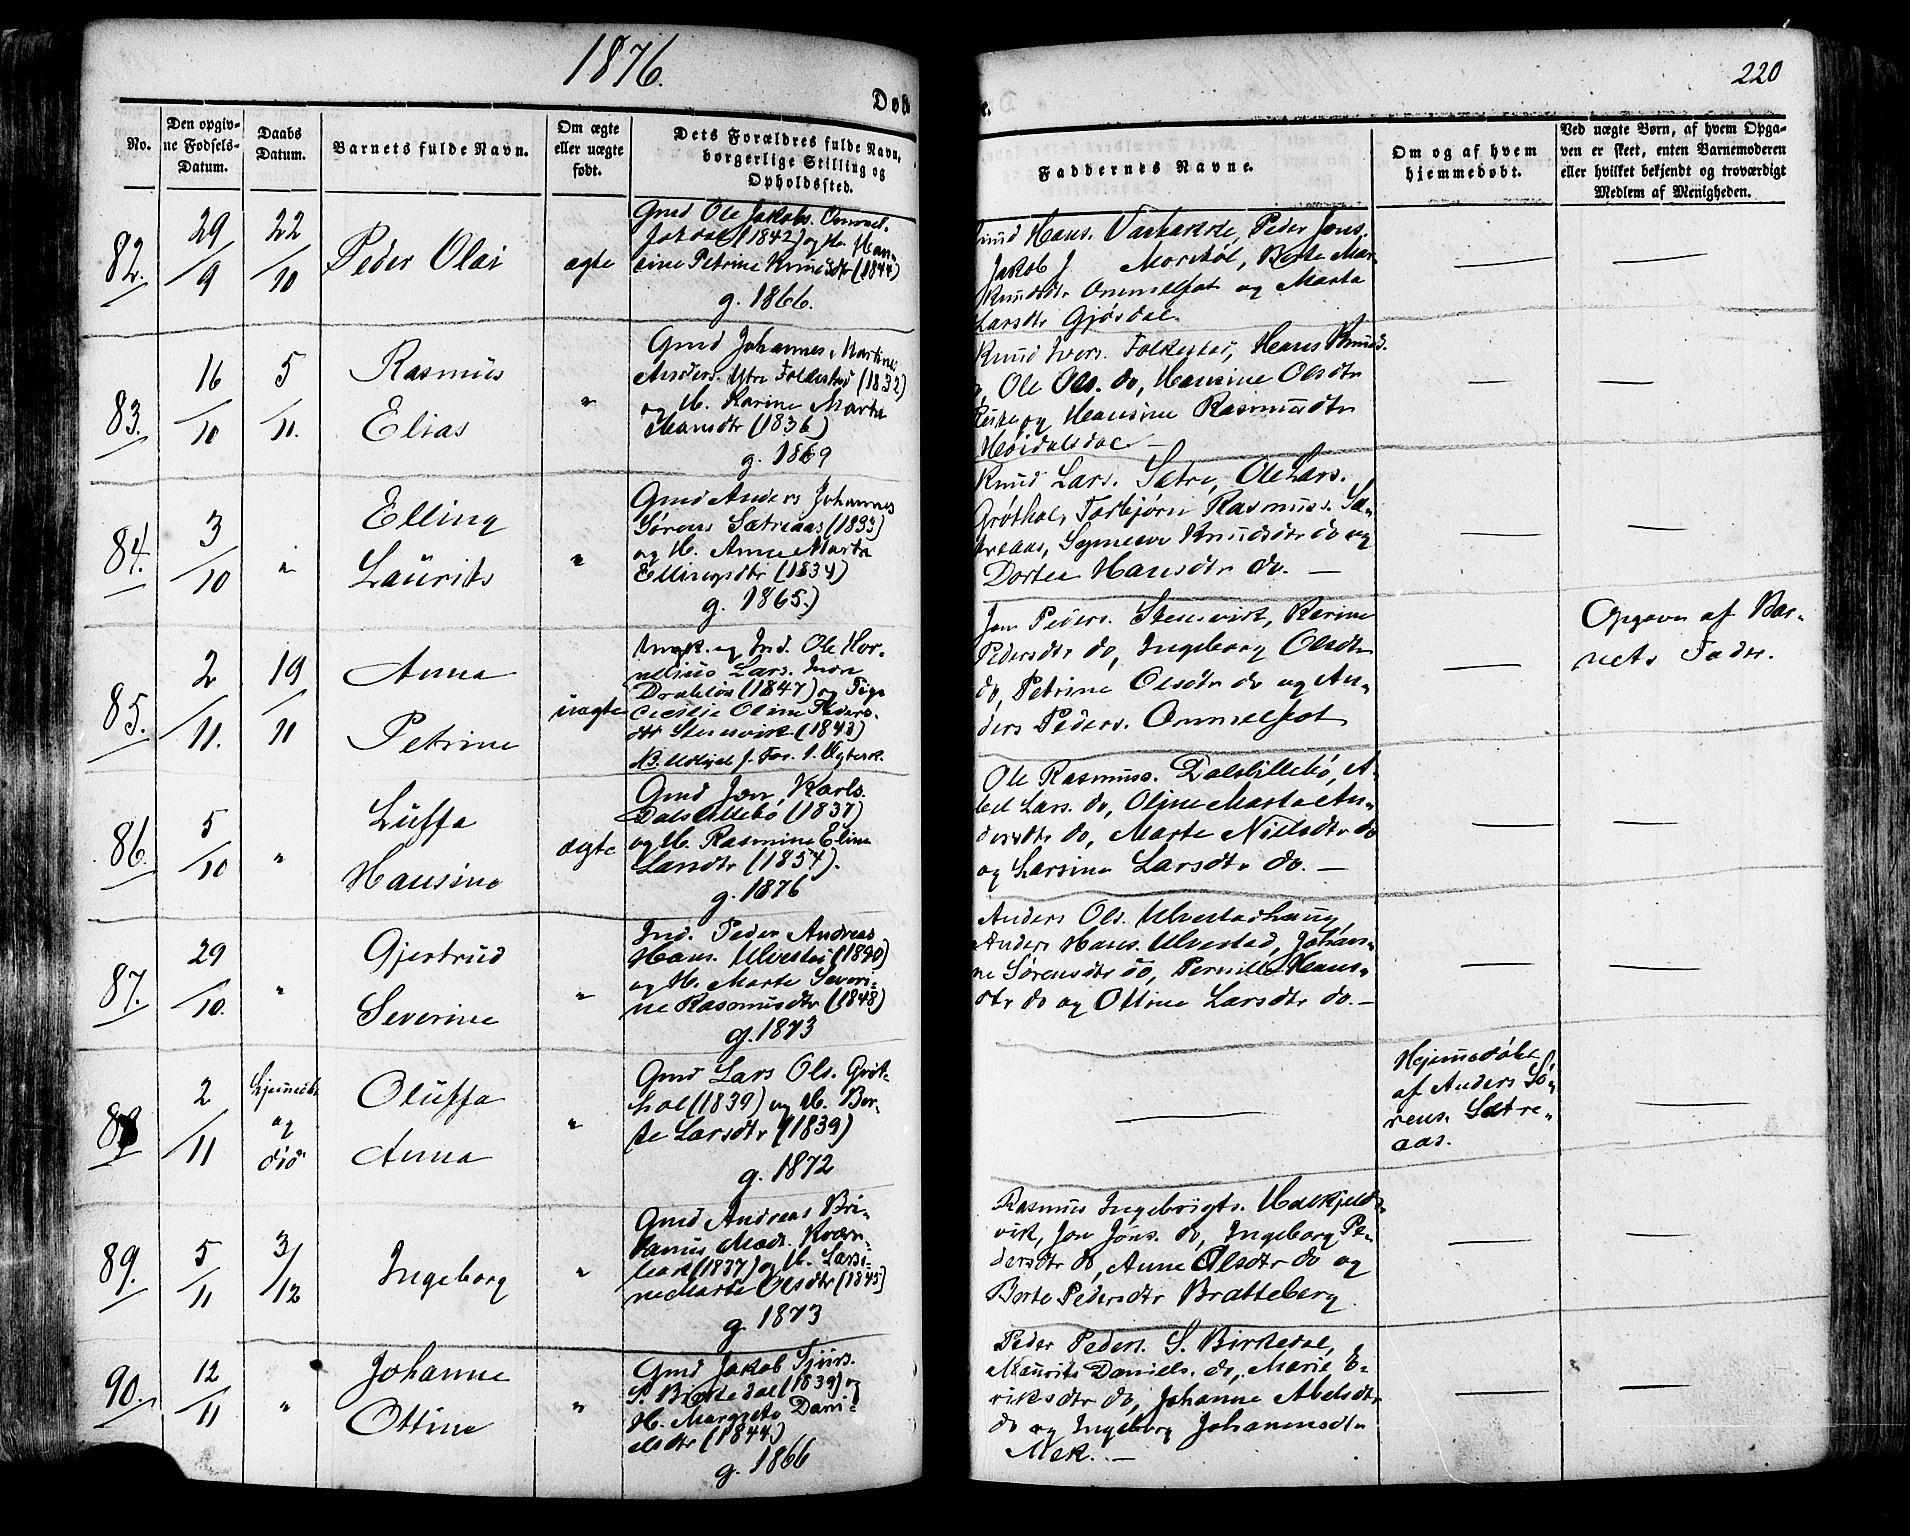 1876.
220
Døb
e.
No.
Den opgiv-
ne Fødsels-
Datum.
Daabs
Datum.
Barnets fulde Navn.
Om ægte
eller uægte
født.
Dets Forældres fulde Navn,
borgerlige Stilling og
Opholdssted.
Faddernes Navne.
Om og af hvem
hjemmedøbt.
Ved uægte Børn, af hvem Opga-
ven er skeet, enten Barnemoderen
eller hvilket bekjendt og troværdigt
Medlem af Menigheden.
82.
29/9
22/10
Peder Olai
ægte
Gmd Ole Jakobs.
(1842) og H. Han-
sine Petrine Knudsdtr (1844)
g. 1866.
Hans. Peder Jons.
Jakob J Berte Mar-
Knudsdtr og Marta
Larsdtr Gjøsdal.
—
—
83.
16/10
5/11.
Rasmus
Elias
"
Gmd Johannes Martinus
Anders. Ytre Folkestad (1832)
og H. Karine Marta
Hansdtr (1836)
g. 1869
Knud Ivers. Folkestad, Hans Knud-
Ole Ols. do, Hansine Olsdtr
og Hansine Rasmusdtr
Høidalsdal —
—
—
84.
3/10
"
Elling
Laurits
"
Gmd Anders Johannes
Sørens Sætreaas (1833)
og H. Anne Marta
Ellingsdtr (1834)
g. 1865.)
Knud Lars. Sætre, Ole Lars.
Grøthol, Torbjørn Rasmuss. Sæ-
treaas, Synneve Knudsdtr do og
Dortea Hansdtr do. —
—
—
85.
2/11.
19/11
Anna
Petrine
uægte
Ungk. og Ind. Ole Kor-
nelius Lars. Indre
(1847) og Pige
Cecilie Oline Peders-
dtr Stensvik (1843)
Jon Peders. Stensvik, Karine
Pedersdtr do, Ingeborg Olsdtr
do, Petrine Olsdtr do og An-
ders Peders. Ommelfot
—
Opgaven af Bar-
nets Fader.
86.
5/10
"
Luffa
Hansine
ægte
Gmd Jon Karls.
Dalslillebø (1837)
og H. Rasmine Eline
Larsdtr (1854).
g. 1876
Ole Rasmuss. Dalslillebø, A-
bel Lars. do, Oline Marta An-
dersdtr do, Marte Nielsdtr do
og Larsine Larsdtr do. —
—
—
87.
29/10.
"
Gjertrud
Severine
"
Ind. Peder Andreas
Hans. Ulvestad (1840)
og H. Marte Severi-
ne Rasmusdtr (1848)
g. 1873
Anders Ols. Ulvestadhaug,
Anders Hans. Ulvestad, Johan-
ne Sørensdtr do, Pernille Hans-
dtr do og Ottine Larsdtr do. —
—
—
88
2/11
Hjemmedøbt
og
død
Oluffa
Anna
"
Gmd Lars Ols. Grøt-
hol (1839) og H. Ber-
te Larsdtr (1839)
g. 1872
—
Hjemmedøbt
af Anders Sø-
rens. Sætre-
aas.
—
89.
5/11
3/12
Ingeborg
"
Gmd Andreas Bri-
tanus Mads. Kværn-
(1837) og H. Larsi-
ne Marta Olsdtr (1845)
g. 1873
Rasmus Ingebrigts. Halkjelds-
vik, Jon Jons. do, Ingeborg Pe-
dersdtr do, Anne Olsdtr do og
Berte Pedersdtr Bratteberg
—
—
90.
12/11
"
Johanne
Ottine
"
Gmd Jakob Sjurs.
S. Birkedal (1839) og
H. Margrete Dani-
elsdtr (1844)
g. 1866
Peder Peders. S. Birkedal,
Maurits Daniels. do, Marie E-
riksdtr do, Johanne Abelsdtr
do og Ingeborg Johannesdtr
Mek. —
—
—